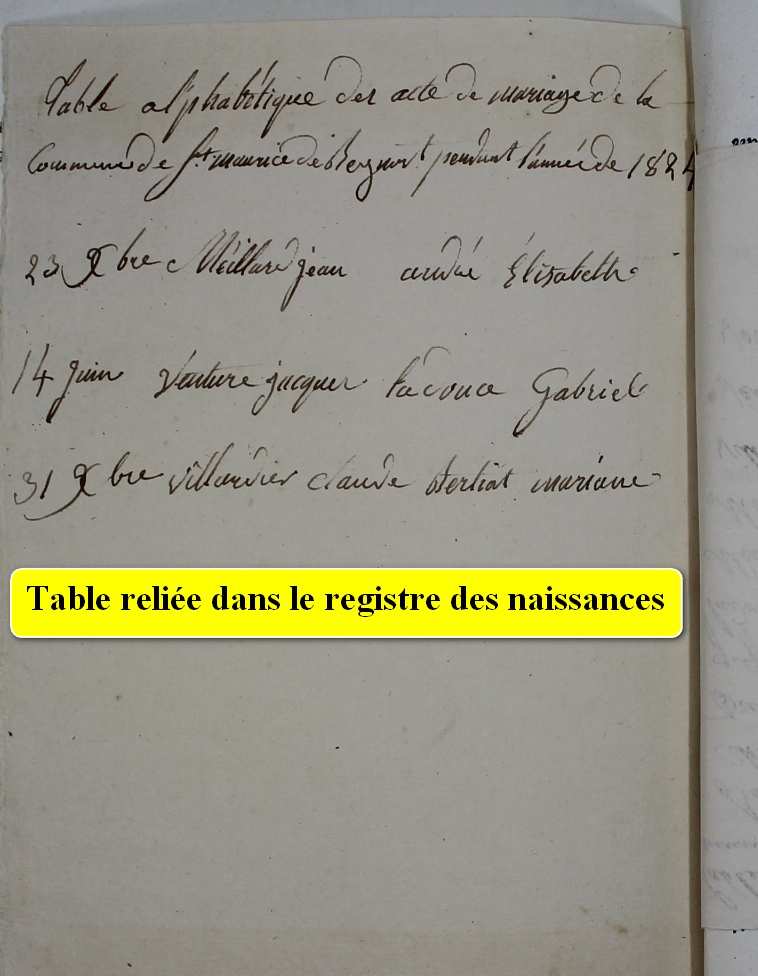 Table alphabétique des acte de mariage de la
Commune de St maurice de pendant l'année de 1824
23 Xbre Meillard jean andré Élisabeth
14 juin Venture jacques Gabriel
31 Xbre villardier claude Bertiat mariane
Table reliée dans le registre des naissances